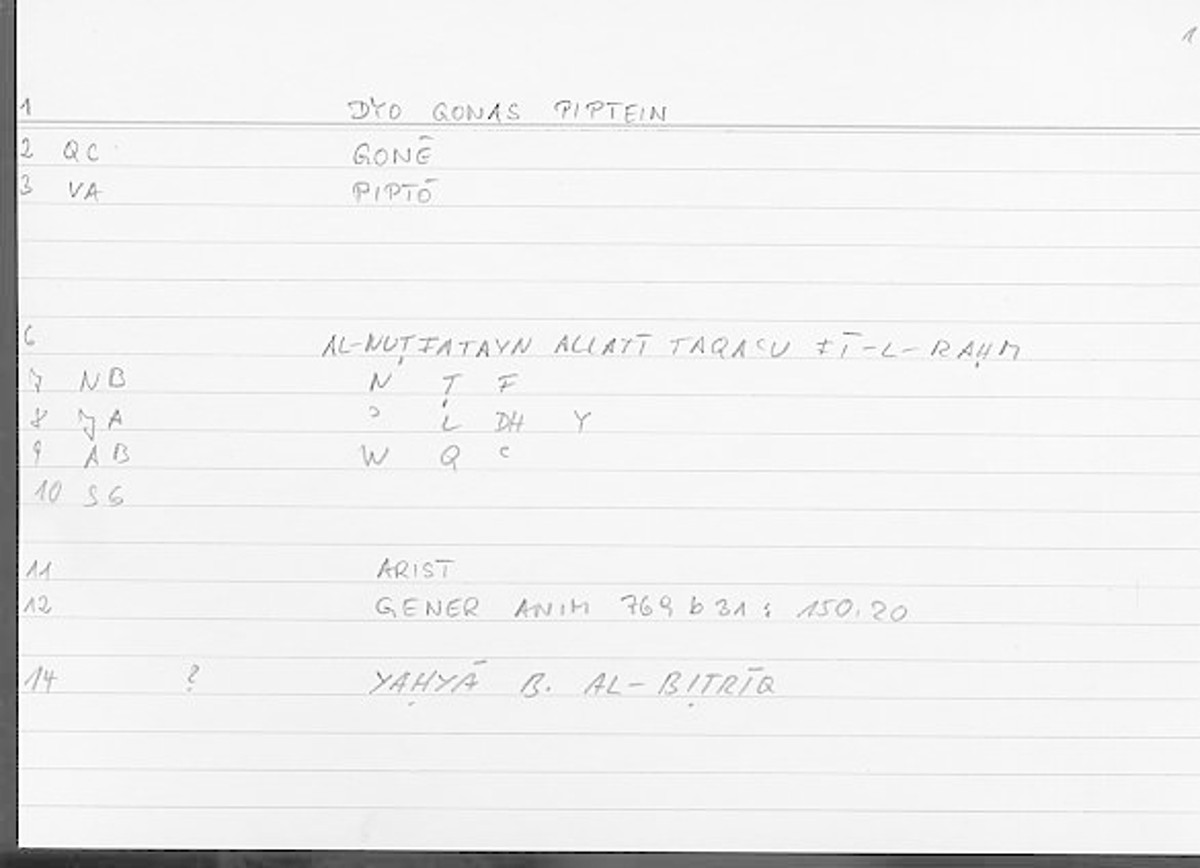 1
1 DYO GONAS PIPTEIN
2 QC GONĒ
3 VA PIPTŌ
6 AL-NUṬFATAYN ALLATĪ TAQAʿU FĪ-L-RAḤM
7 NB N Ṭ F
8 JA ʾ L DH Y
9 AB W Q ʿ
10 SG
11 ARIST
12 GENER ANIM 769 b 31 : 150.20
14 ? YAḤYĀ B. AL-BIṬRĪQ